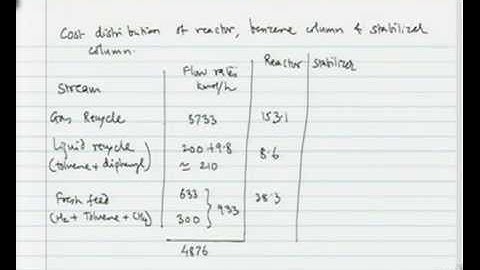 Cost distribution of reactor, benzene column & stabilizer
column.
Stream
Flow rates
kmol/h
Reactor
Stabilizer
Gas Recycle
3733
153.1
Liquid recycle
(toluene + diphenyl)
200 + 9.8
≃ 210
8.6
Fresh feed
(H2 + Toluene + CH4)
633
300
} 933
38.3
4876